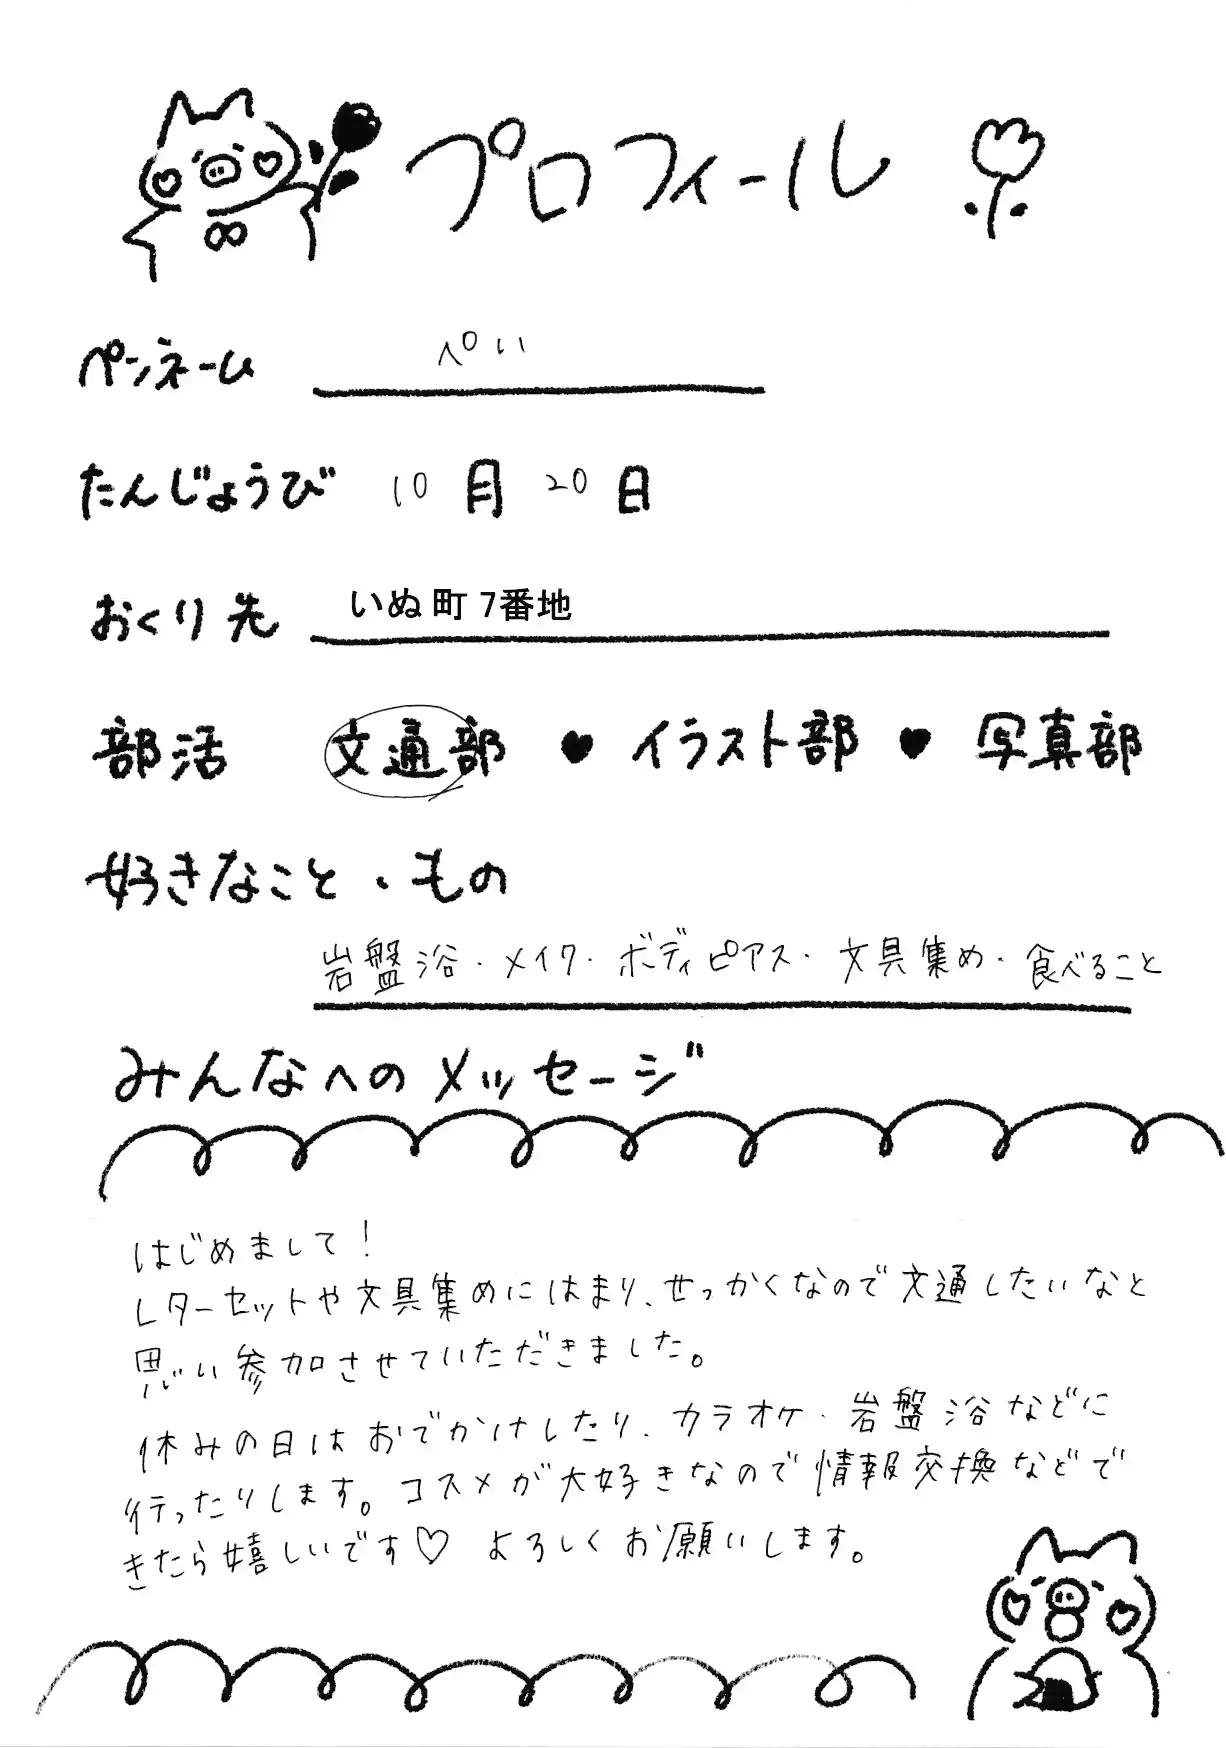 プロフィール
ペンネーム ぺい
たんじょうび 10月20日
おくり先 いぬ町 7番地
部活 文通部 ♥ イラスト部 ♥ 写真部
好きなこと・もの
岩盤浴・メイク・ボディピアス・文具集め・食べること
みんなへのメッセージ
はじめまして!
レターセットや文具集めにはまり、せっかくなので文通したいなと
思い参加させていただきました。
休みの日はおでかけしたり、カラオケ・岩盤浴などに
行ったりします。コスメが大好きなので情報交換などで
きたら嬉しいです♡ よろしくお願いします。